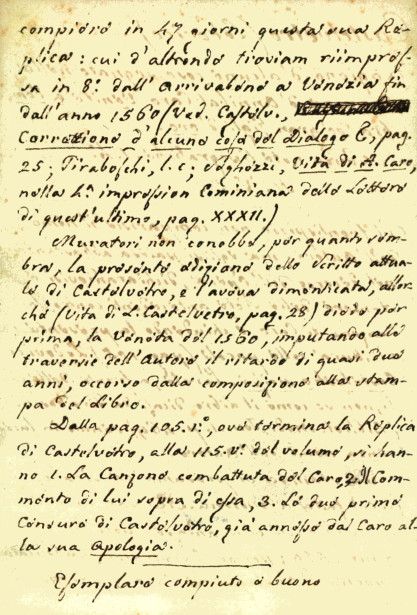 compiere in 47 giorni questa sua Re-
plica: cui d'altronde troviam riimpres-
sa in 8.º dall'Arrivabene a Venezia fin
dall'anno 1560 (Ved. Castelv.,
Correzione d'alcune cose del Dialogo &, pag.
25; Tiraboschi, l. c; Seghezzi, Vita di A. Caro,
nella 4.ª impression Cominiana delle Lettere
di quest'ultimo, pag. XXXII.)
Muratori non conobbe, per quanto sem-
bra, la presente edizione dello scritto attua-
le di Castelvetro, e l'aveva dimenticata, allor-
chè (Vita di L. Castelvetro, pag. 28) diede per
prima, la Veneta del 1560, imputando alle
traversie dell'Autore il ritardo di quasi due
anni, occorso dalla composizione alla stam-
pa del Libro.
Dalla pag. 105. rº, ove termina la Replica
di Castelvetro, alla 115. vº. del volume, si han-
no 1. La Canzone combattuta del Caro, 2. Il Com-
mento di lui sopra di essa, 3. Le due prime
Censure di Castelvetro, già annesse dal Caro al-
la sua Apologia.
Esemplare compiuto e buono